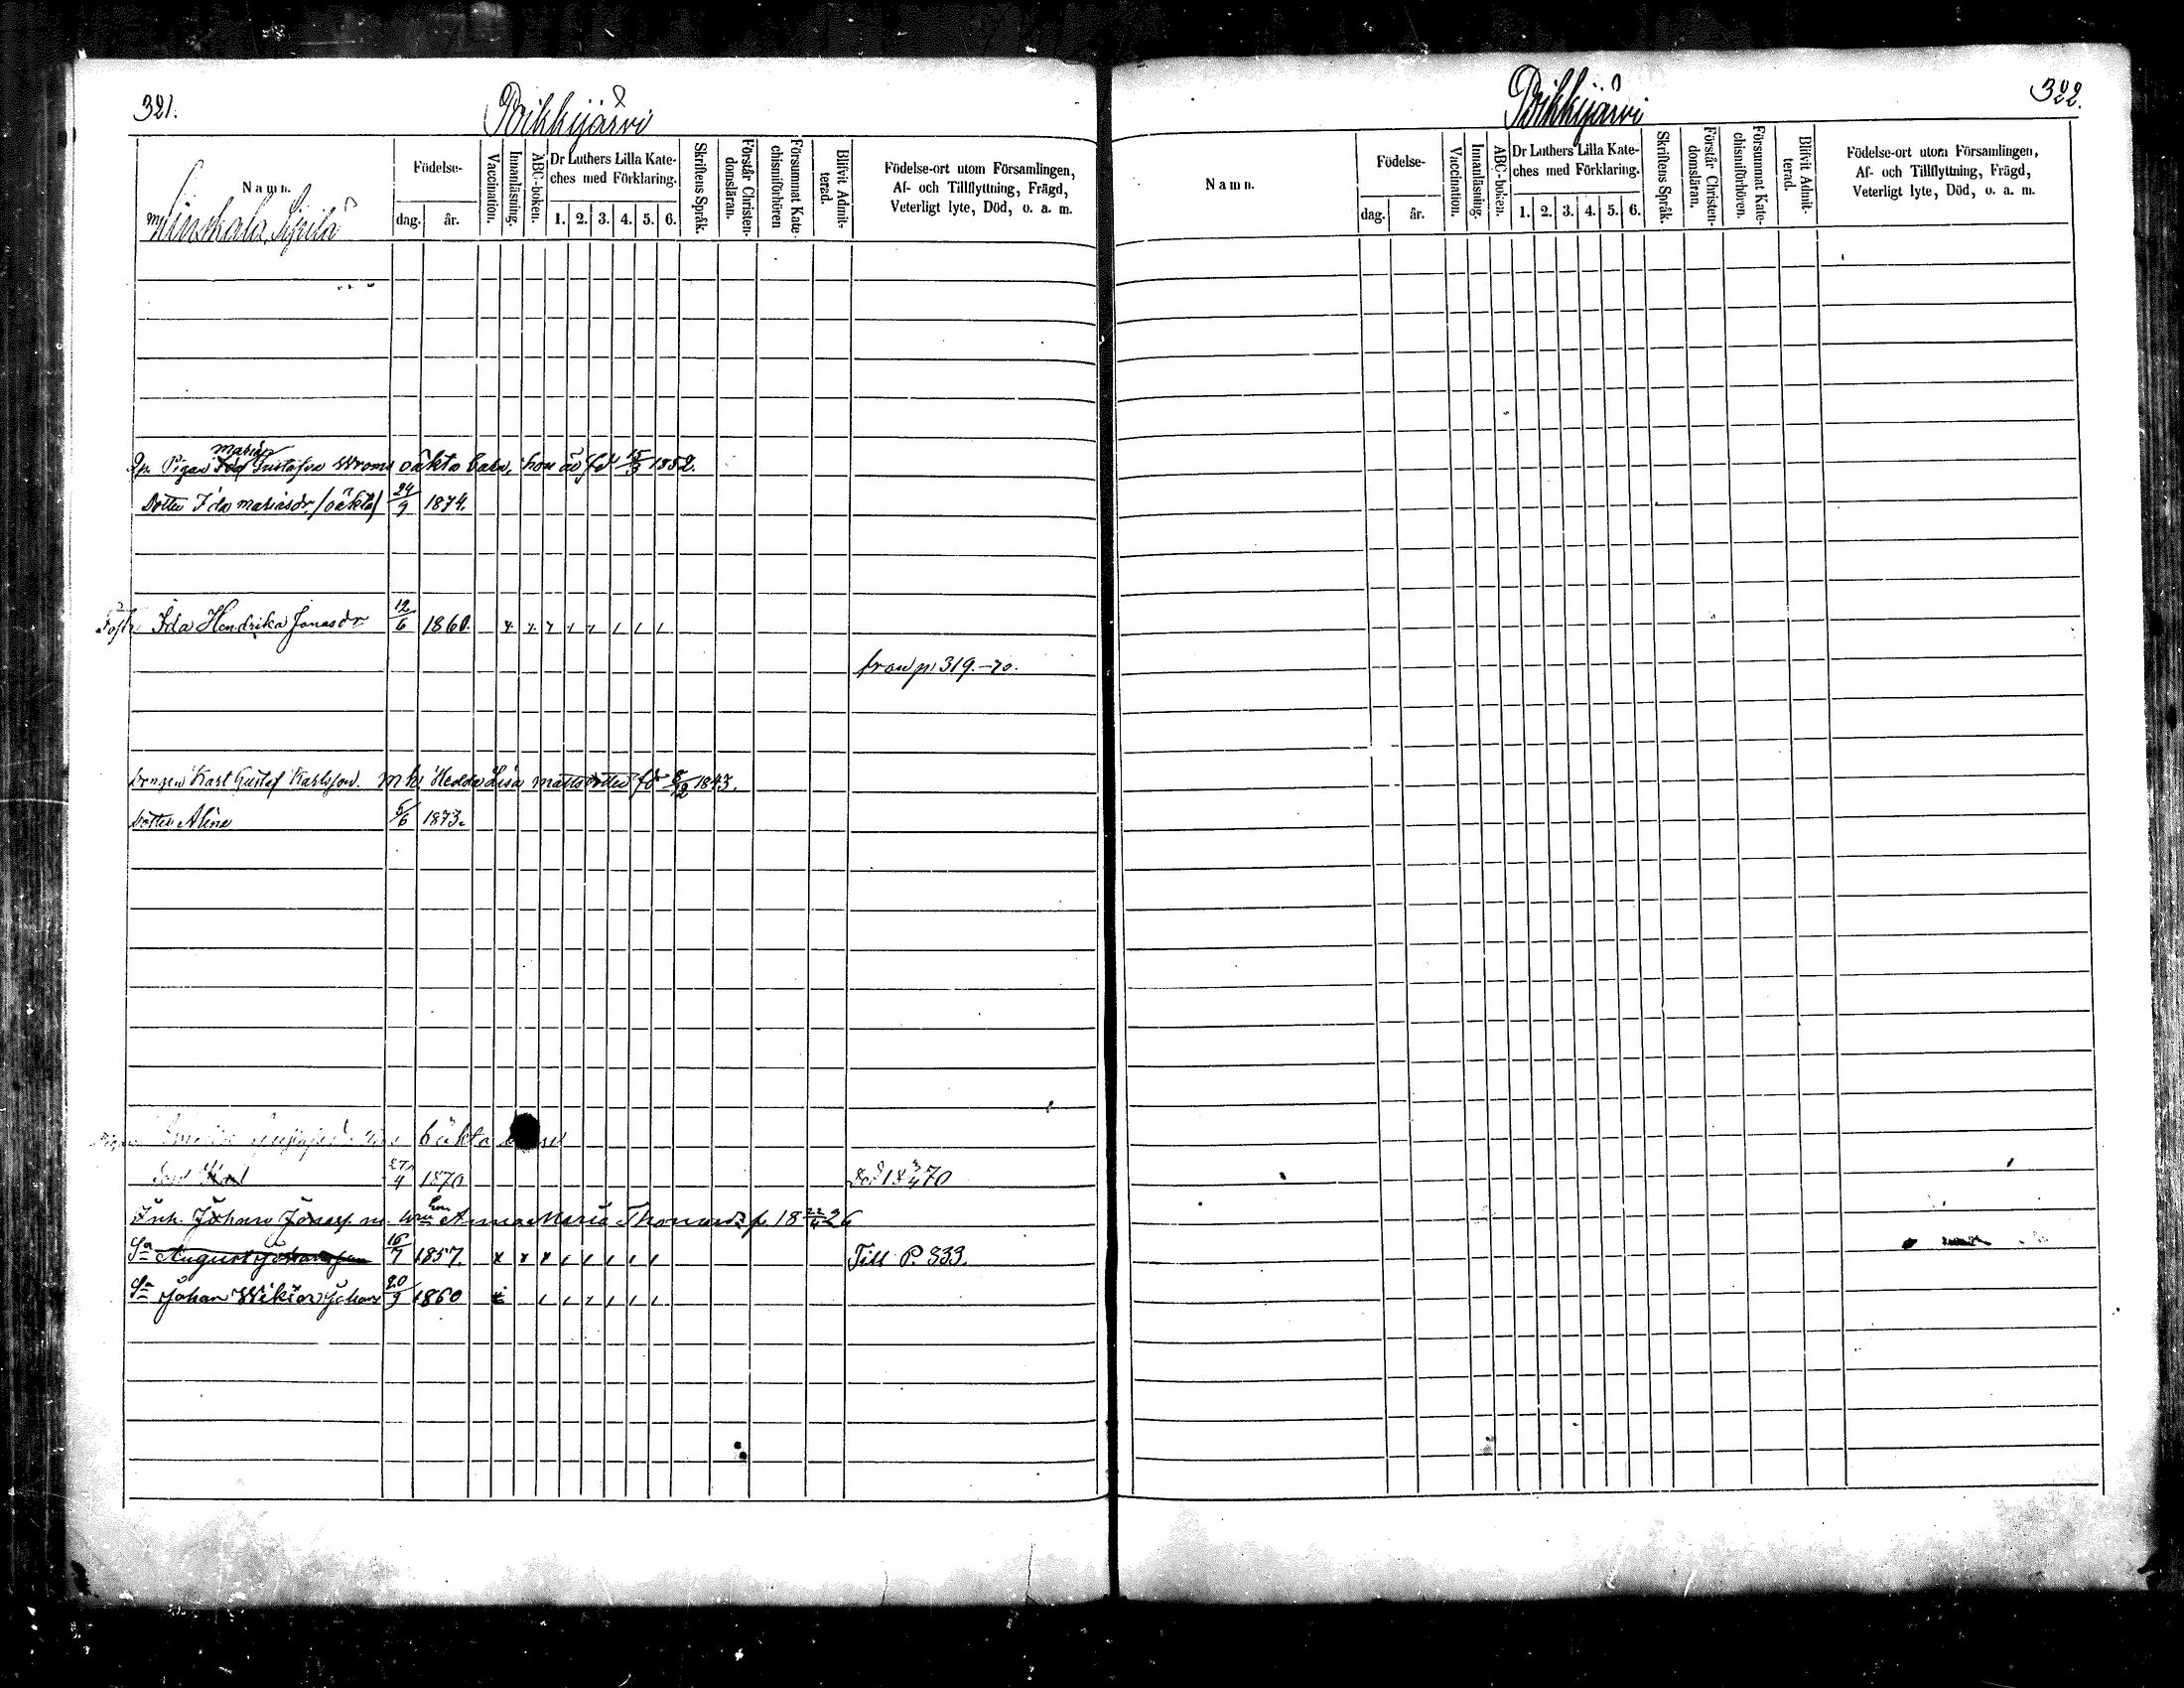 321.
Poikkijärvi
Namn.
Födelse-
dag.
år.
Vaccination.
Innanläsning.
ABC-boken.
Dr Luthers Lilla Kate-
ches med Förklaring.
1. 2. 3. 4. 5. 6.
Skriftens Språk.
Förstår Christen-
domsläran.
Försummat Kate-
chismiförhören
Blifvit Admit-
terad.
Födelse-ort utom Församlingen,
Af- och Tillflyttning, Frägd,
Veterligt lyte, Död, o. a. m.
Sipilä
Pigan Maria Gustafva oäkta barn, hon är fd 15/3 1852.
Dotter Ida Mariasdr /oäkta/ 24/9 1874.
Ida Hendrika Jonasdr 12/6 1860.
från p. 319.-70.
Drengen Karl Gustaf Karlsson. m.h. Hedda Lisa Mattsdotter fd 8/12 1843.
Dotter Alina 5/6 1873.
oäkta
27/4 1870 Död 18 3/4 70
Inh. Johan Anna Maria 18 22/4 26
Sn August Johansson 16/7 1857. Till P. 333.
Sn Johan Wiktor Johans 20/9 1860
322.
Poikkijärvi
Namn.
Födelse-
dag.
år.
Vaccination.
Innanläsning.
ABC-boken.
Dr Luthers Lilla Kate-
ches med Förklaring.
1. 2. 3. 4. 5. 6.
Skriftens Språk.
Förstår Christen-
domsläran.
Försummat Kate-
chismiförhören.
Blifvit Admit-
terad.
Födelse-ort utom Församlingen,
Af- och Tillflyttning, Frägd,
Veterligt lyte, Död, o. a. m.